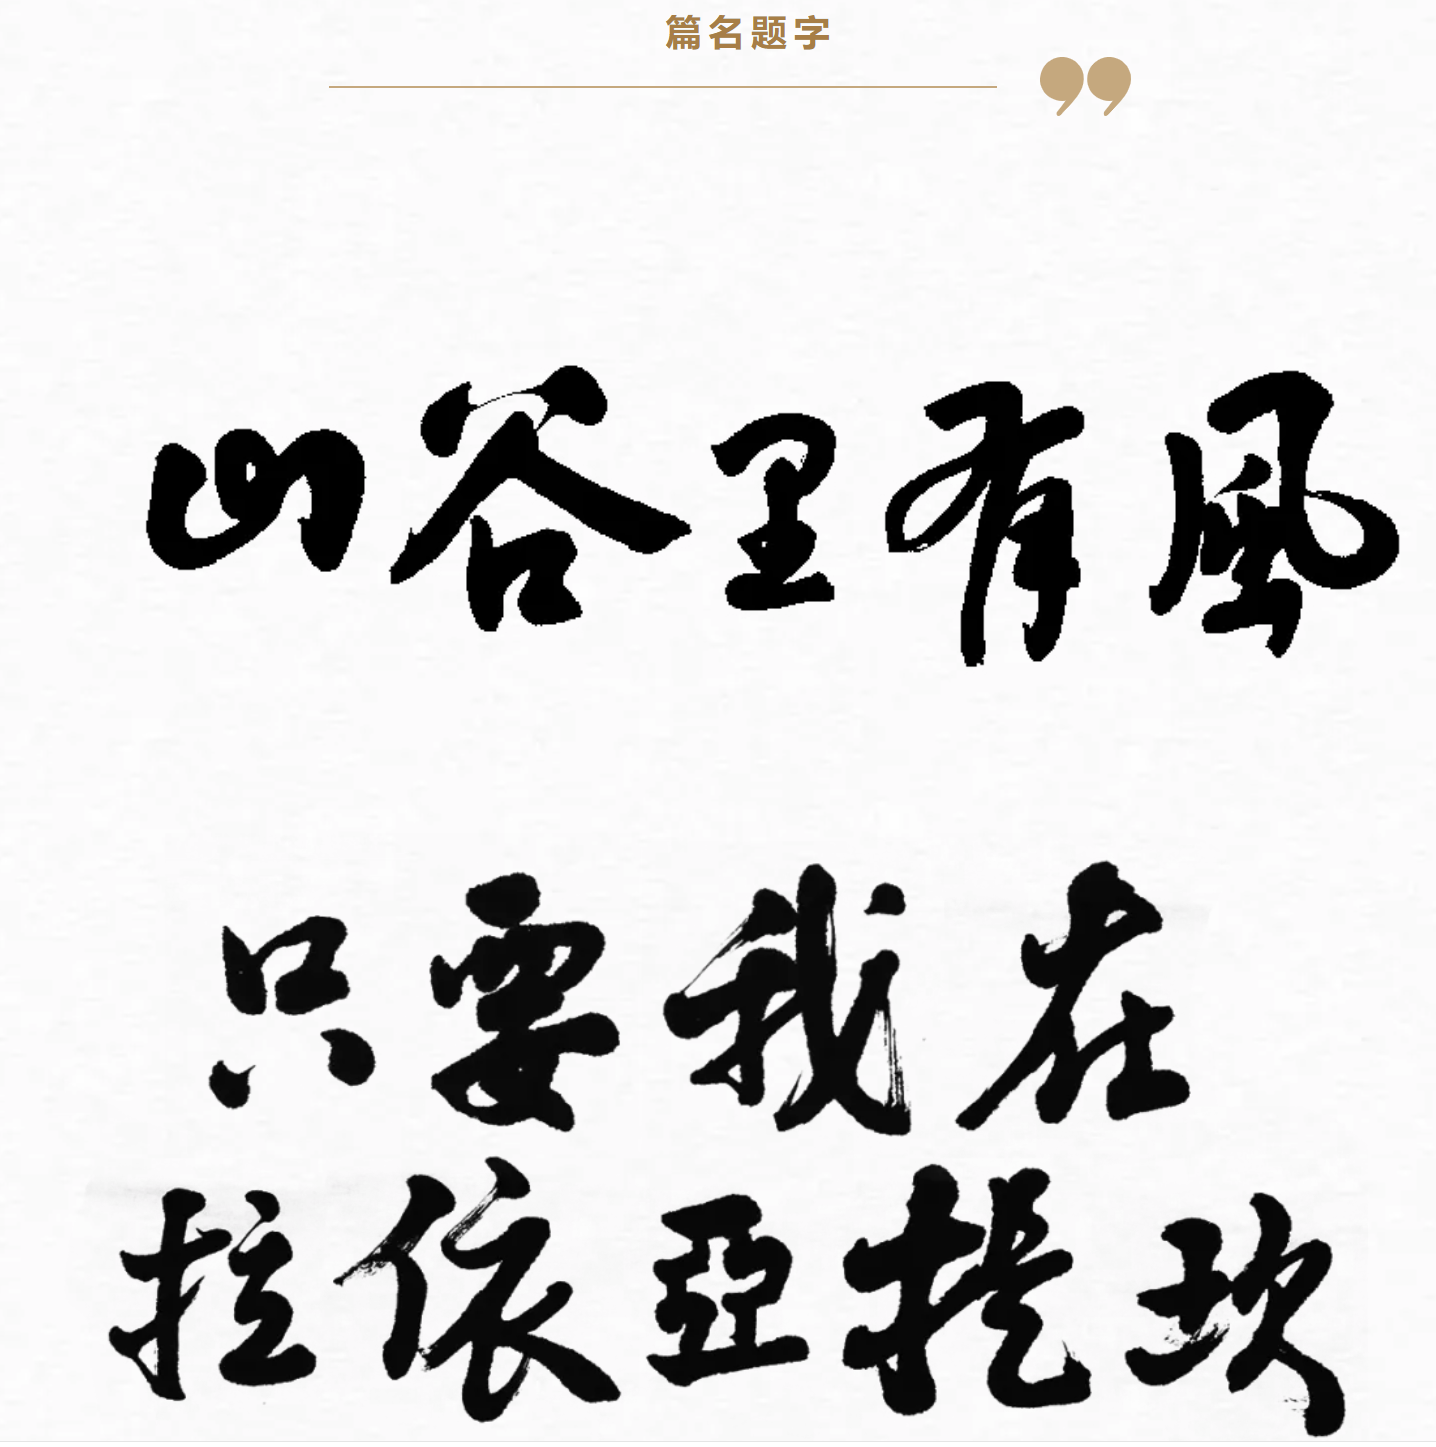 篇名题字
山谷里有風
只要我在
拉依亞提坎